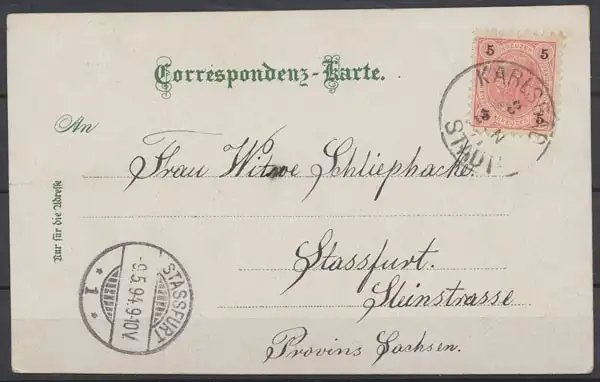 Correspondenz-Karte.
An
Frau Witwe Schliephacke.
Stassfurt.
Steinstrasse
Provins Sachsen.
Nur für die Adresse
5 KREUZER 5
5 5
KARLSBAD
STADT
STASSFURT
-9.5.94.9-10V.
* 1 *